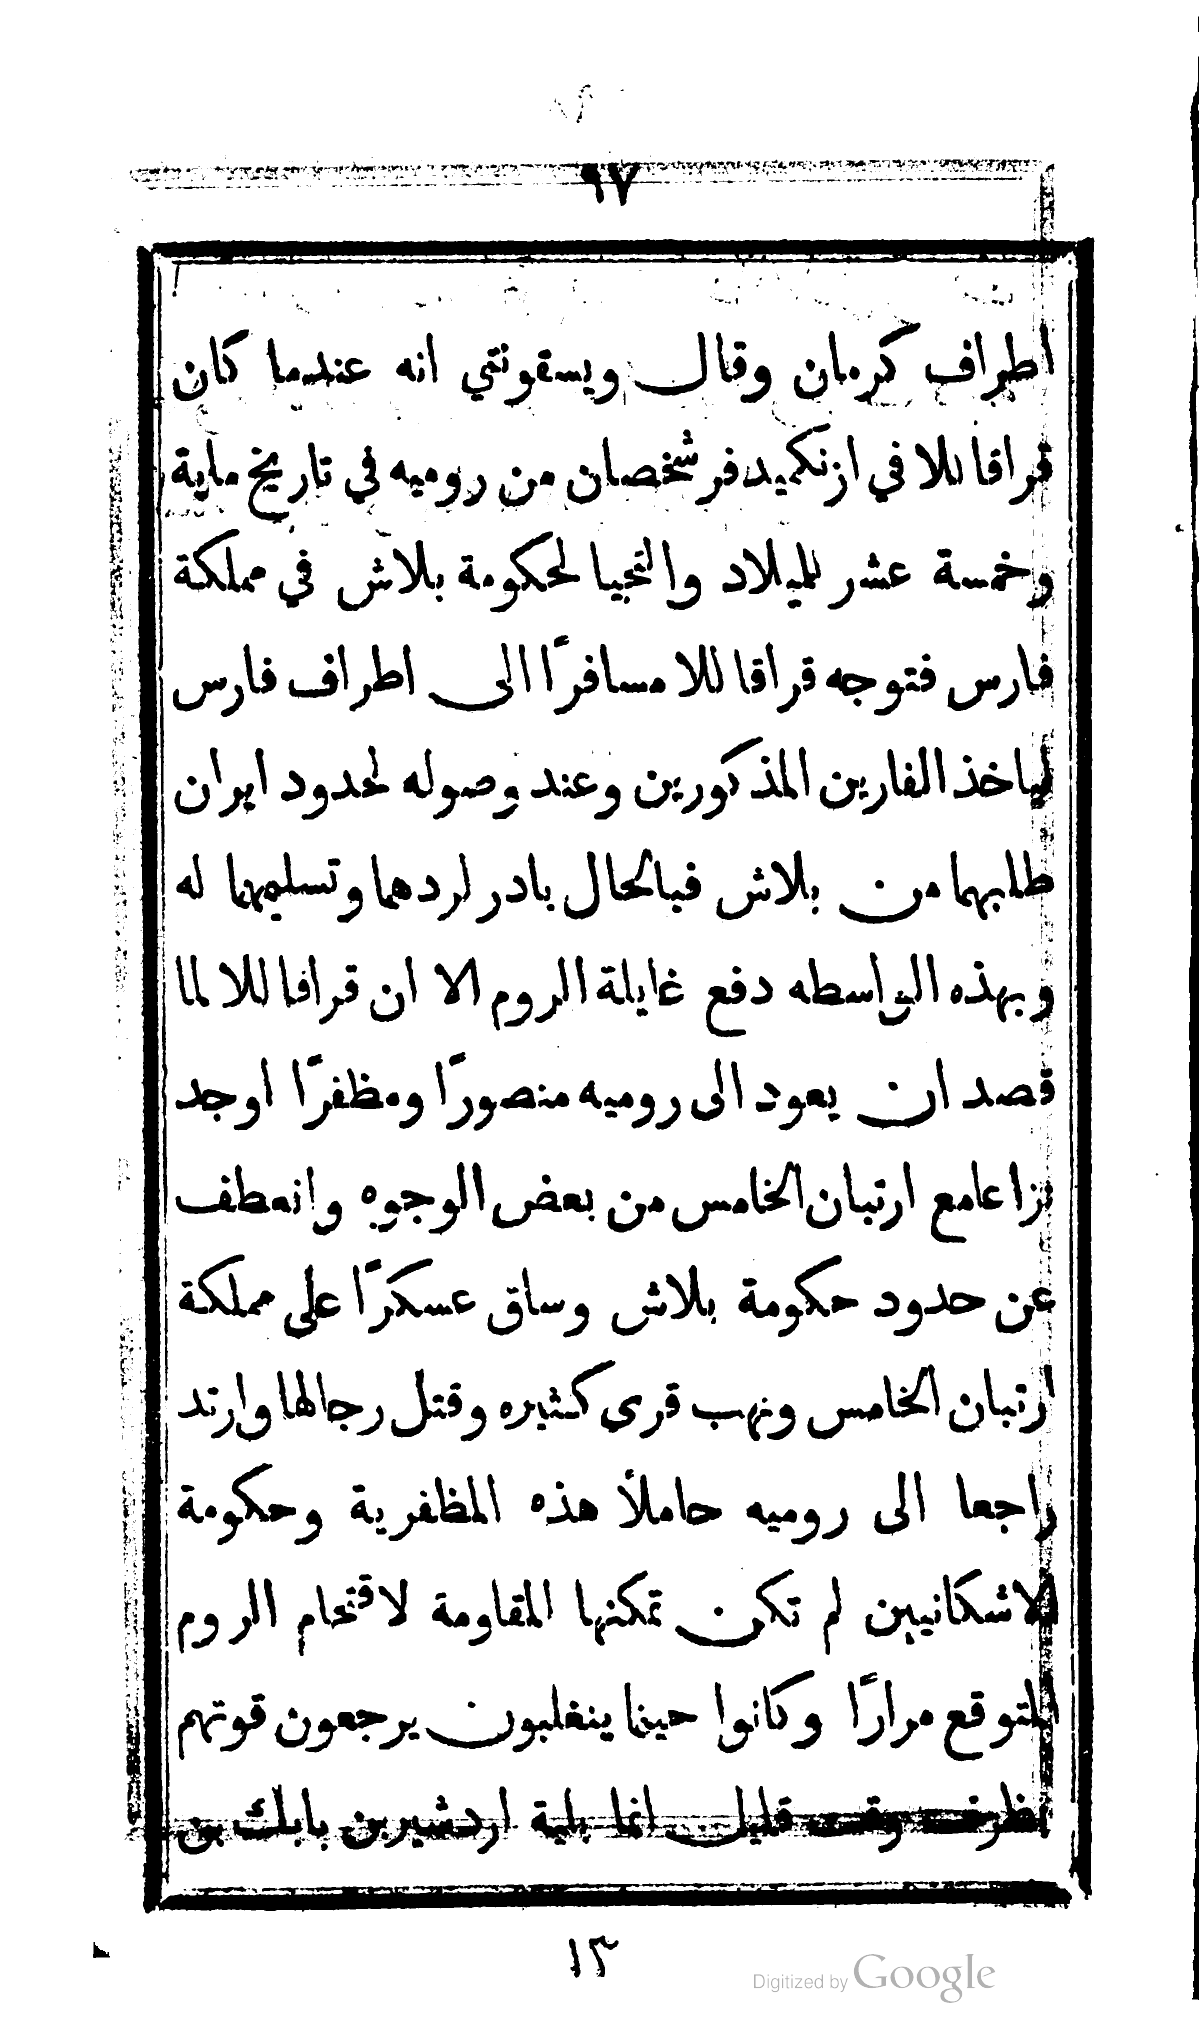 ٩٧
اطراف كرمان وقال ويسقونتي انه عندما كان
قراقاللا في ازنكميد فر شخصان من روميه في تاريخ ماية
وخمسة عشر للميلاد والتجيا لحكومة بلاش في مملكة
فارس فتوجه قراقا للا مسافرًا الى اطراف فارس
لياخذ الفارين المذكورين وعند وصوله لحدود ايران
طلبهما من بلاش فبالحال بادر لردهما وتسليمهما له
وبهذه الواسطه دفع غايلة الروم الا ان قراقا للا لما
قصد ان يعود الى روميه منصورًا ومظفرًا اوجد
نزاعا مع ارتبان الخامس من بعض الوجوه وانعطف
عن حدود حكومة بلاش وساق عسكرًا على مملكة
ارتبان الخامس ونهب قرى كثيره وقتل رجالها وارتد
راجعا الى روميه حاملاً هذه المظفرية وحكومة
الاشكانيين لم تكن تمكنها المقاومة لاقتحام الروم
المتوقع مرارًا وكانوا حينما ينغلبون يرجعون قوتهم
بظرف وقت قليل انما بلية اردشير بن بابك بن
١٣
Digitized by Google